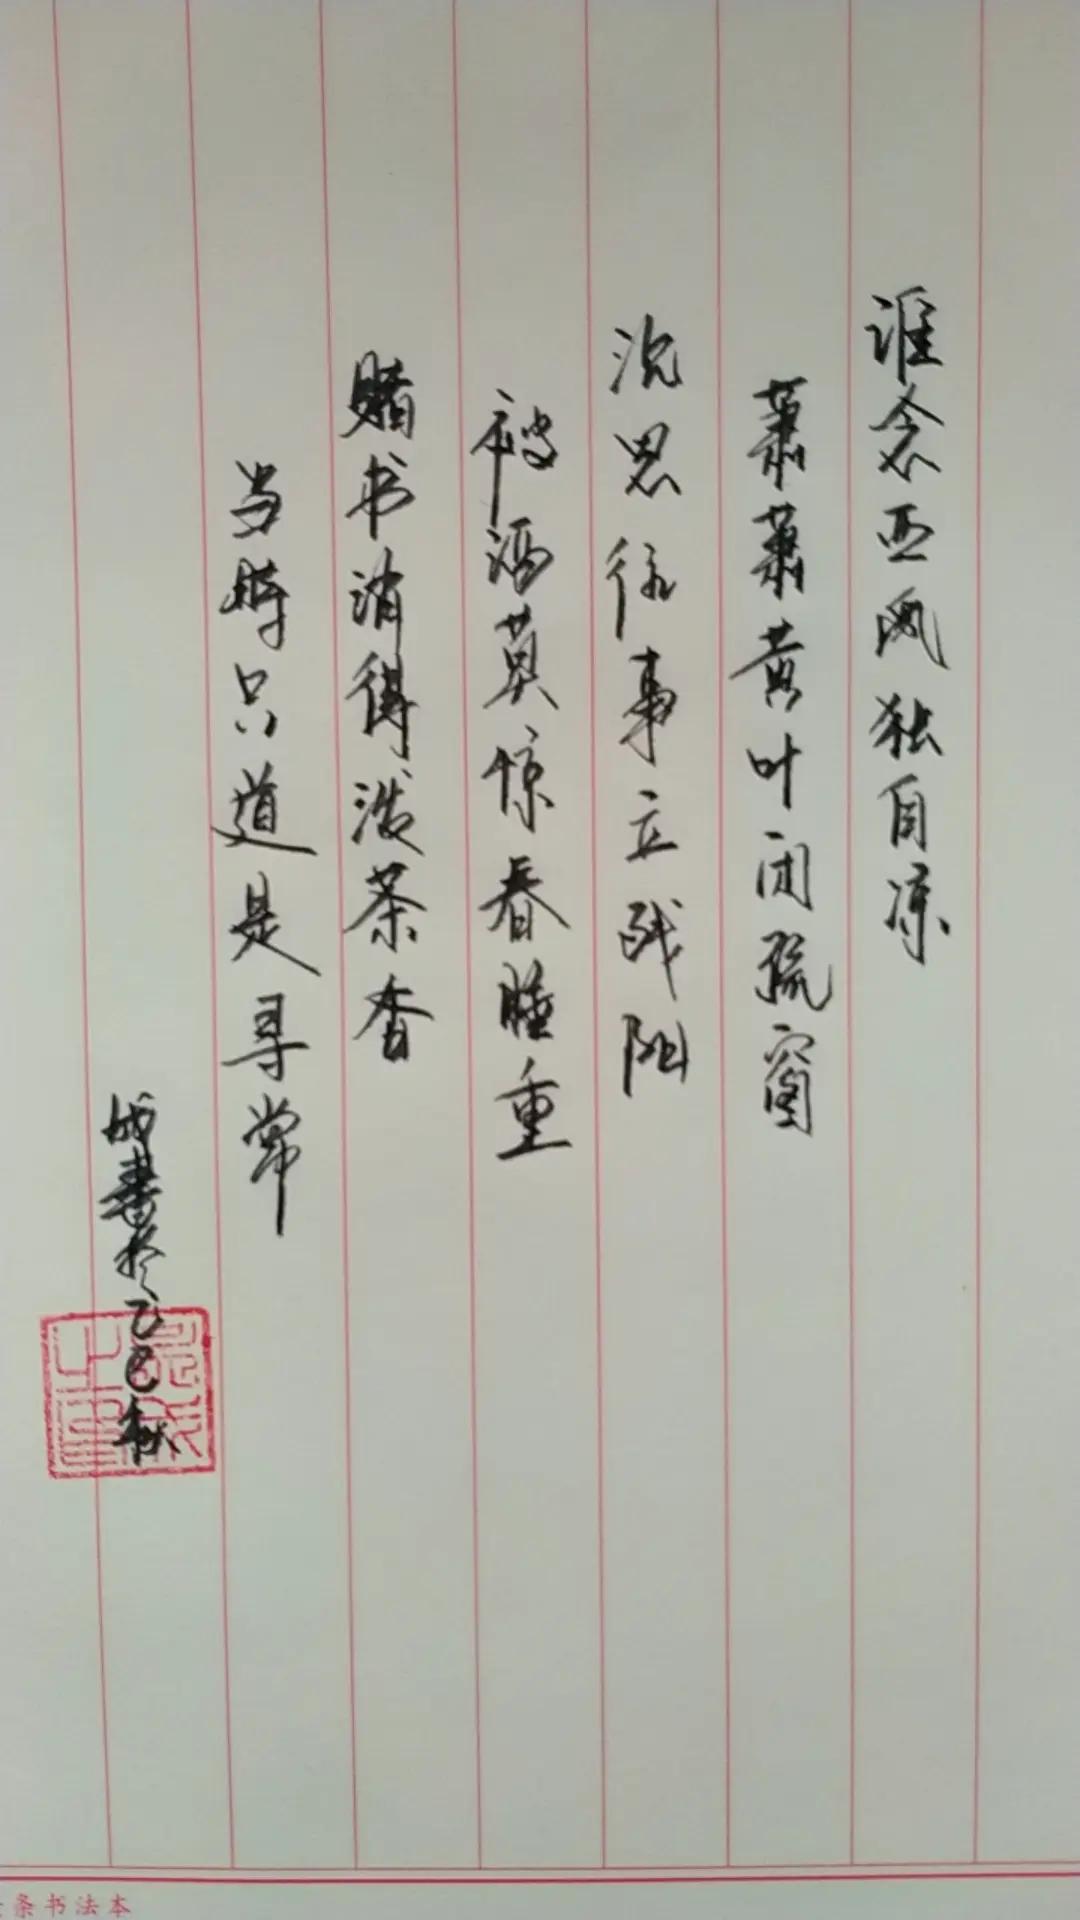 谁念西风独自凉
萧萧黄叶闭疏窗
沉思往事立残阳
被酒莫惊春睡重
赌书消得泼茶香
当时只道是寻常
成书于乙巳秋
条书法本